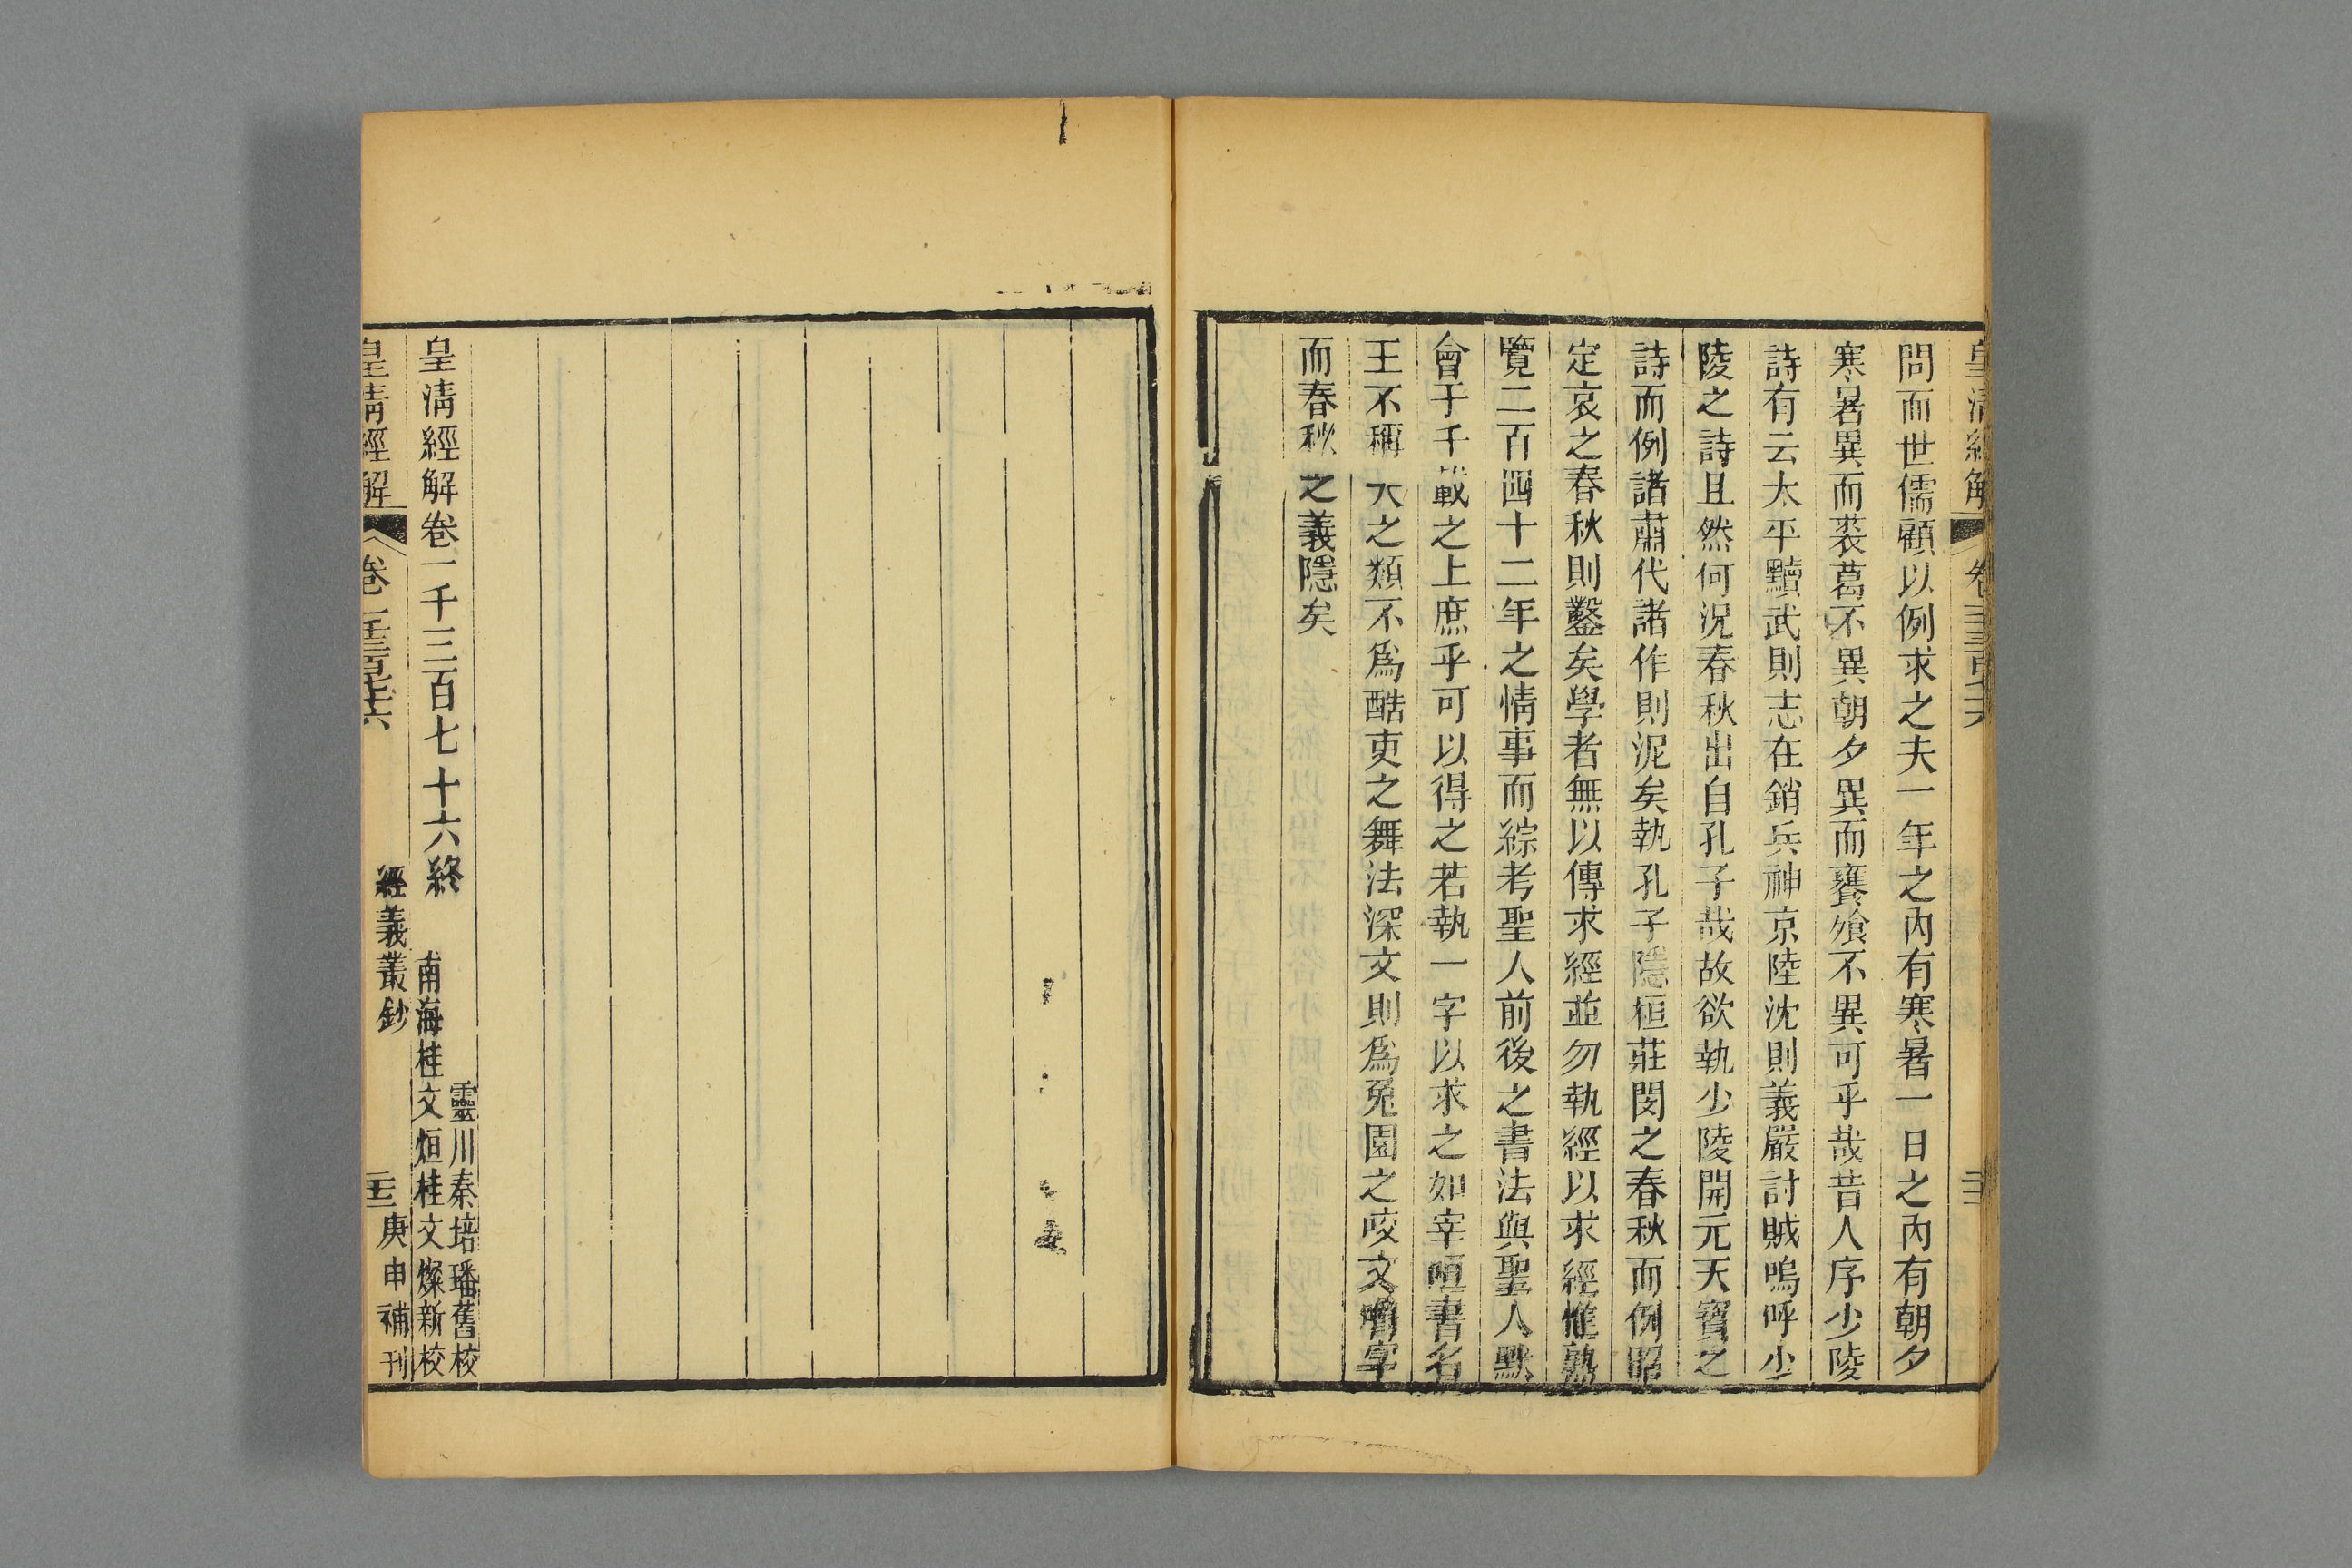 皇清經解
問而世儒顧以例求之夫一年之內有寒暑一日之內有朝夕
寒暑異而裘葛不異朝夕異而饔飧不異可乎哉昔人序少陵
詩有云太平黷武則志在銷兵神京陸沈則義嚴討賊嗚呼少
陵之詩且然何況春秋出自孔子哉故欲執少陵開元天寶之
詩而例諸肅代諸作則泥矣執孔子隱桓莊閔之春秋而例昭
定哀之春秋則鑿矣學者無以傳求經並勿執經以求經惟熟
覽二百四十二年之情事而綜考聖人前後之書法與聖人默
會于千載之上庶乎可以得之若執一字以求之如宰咺書名
王不稱天之類不爲酷吏之舞法深文則爲兔園之咬文嚼字
而春秋之義隱矣
皇清經解卷一千三百七十六終
靈川秦培璠舊校
南海桂文烜桂文燦新校
皇清經解
卷一千三百七十六
經義叢鈔
庚申補刊